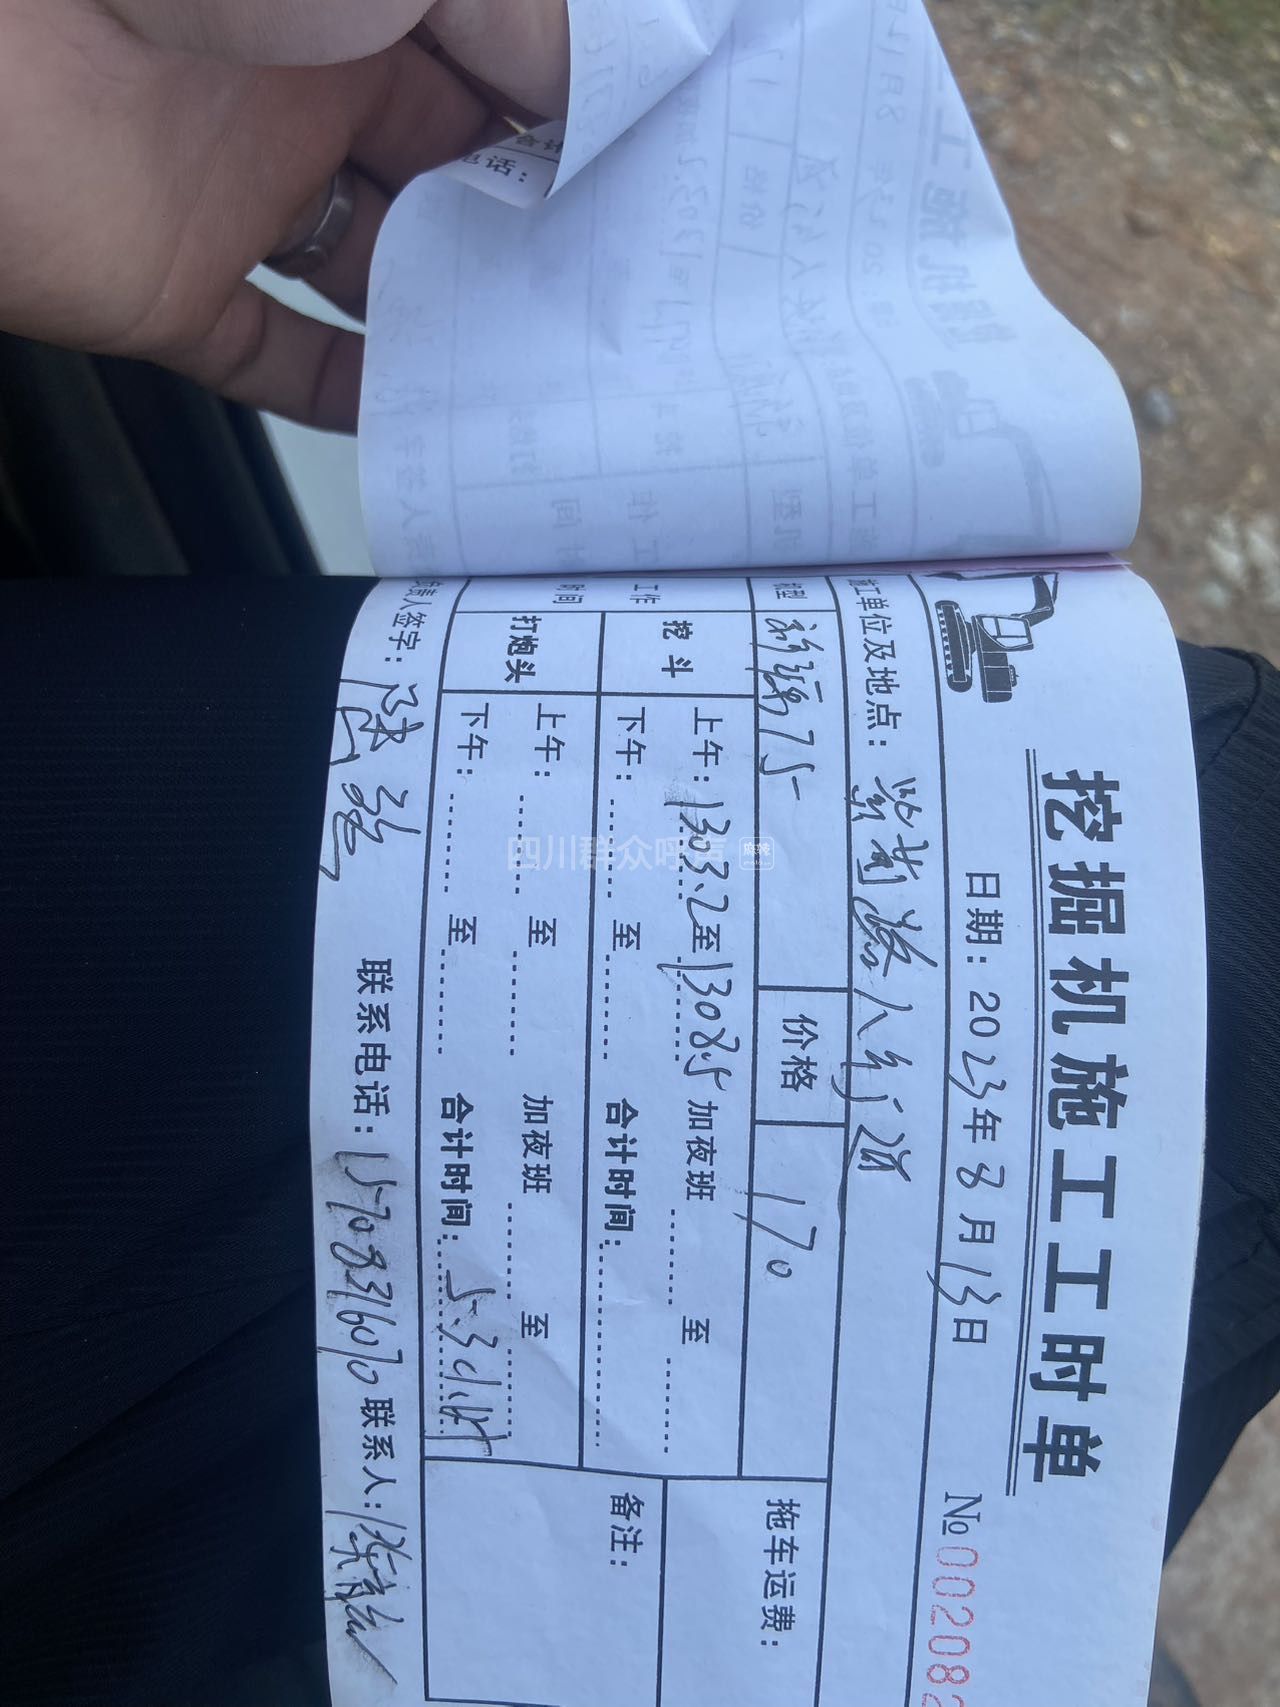 挖掘机施工工时单
日期：2023年8月13日 №002082
施工单位及地点：紫荆 人行道
机型 75 价格 170 拖车运费：
工作时间
挖斗 上午：1303.2至1308.5 加夜班 至
下午： 至 合计时间：
备注：
打炮头 上午： 至 加夜班 至
下午： 至 合计时间：5.3小时
负责人签字：陈 联系电话：15708316070 联系人：
电话：
四川群众呼声